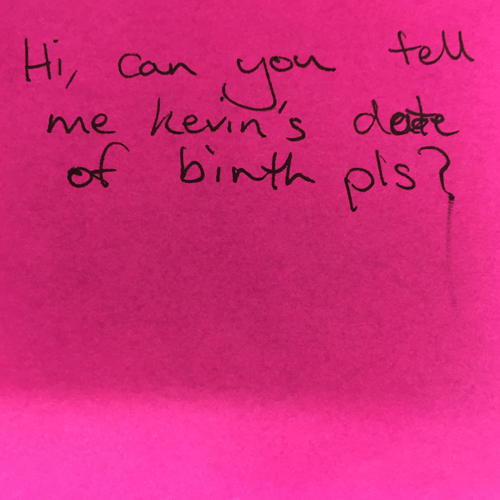 Hi, can you tell
me kevin's date
of birth pls?